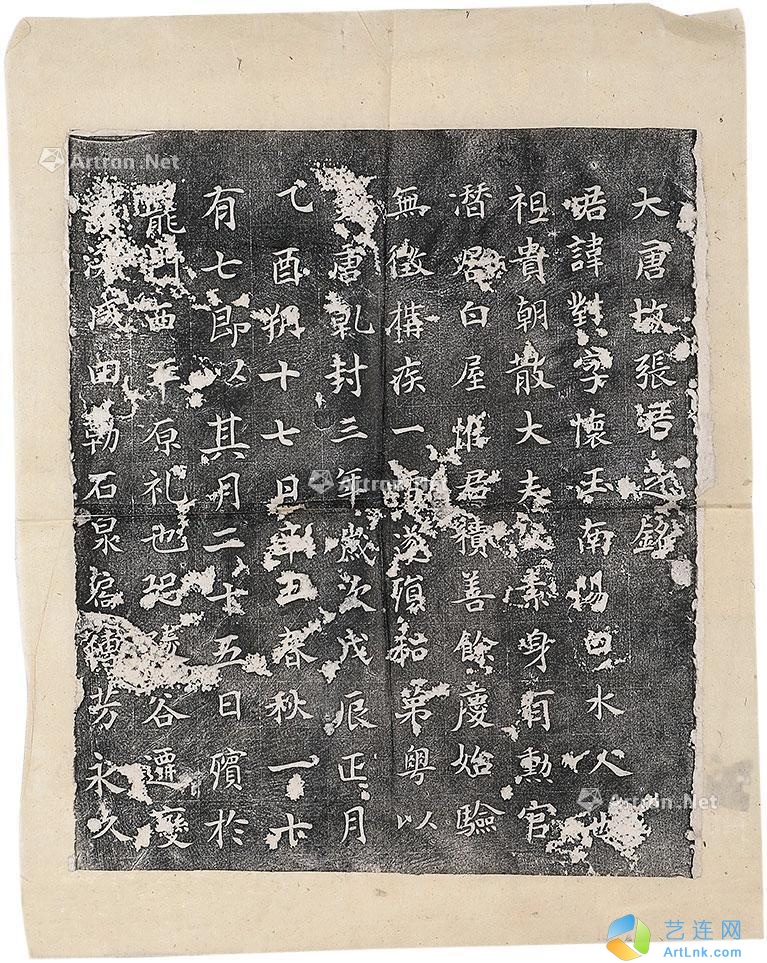 大唐故張君之銘
君諱對字懷玉南陽白水人也
祖貴朝散大夫父素身有勳官
潛君白屋惟君積善餘慶始驗
無徵構疾一宵遂殞私第粵以
大唐乹封三年歲次戊辰正月
乙酉朔十七日辛丑春秋一十
有七即以其月二十五日殯於
龍門西平原礼也恐陵谷遷變
海成田勒石泉傳芳永久
Artron.Net
Artron.Net
Artron.Net
艺连网
ArtLnk.com